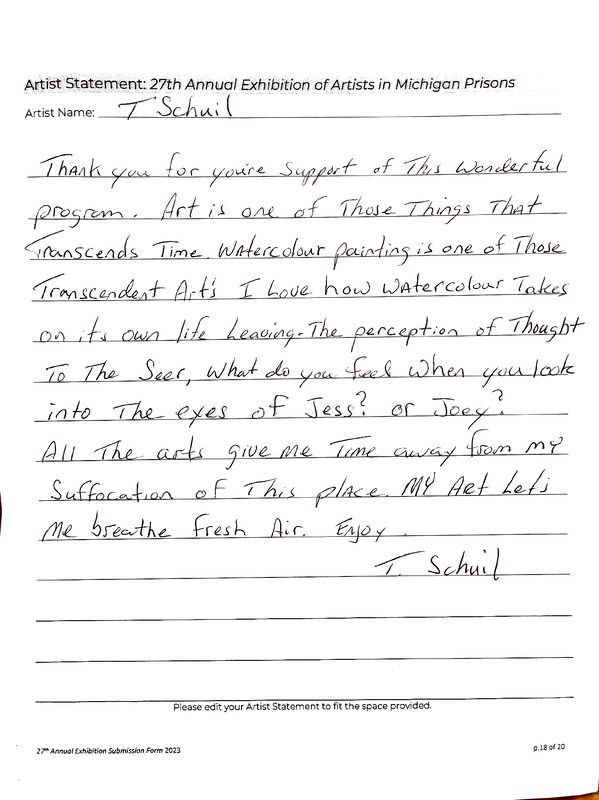 Artist Statement: 27th Annual Exhibition of Artists in Michigan Prisons
Artist Name: T Schuil
Thank you for you're Support of This Wonderful
program. Art is one of Those Things That
Transcends Time. Watercolour painting is one of Those
Transcendent Art's I Love how Watercolour Takes
on its own life Leaving-The perception of Thought
To The Seer, What do you feel When you look
into The eyes of Jess? or Joey?
All The arts give me Time away from my
Suffocation of This place. My Art Let's
me breathe fresh Air. Enjoy.
T. Schuil
Please edit your Artist Statement to fit the space provided.
27th Annual Exhibition Submission Form 2023
p.18 of 20